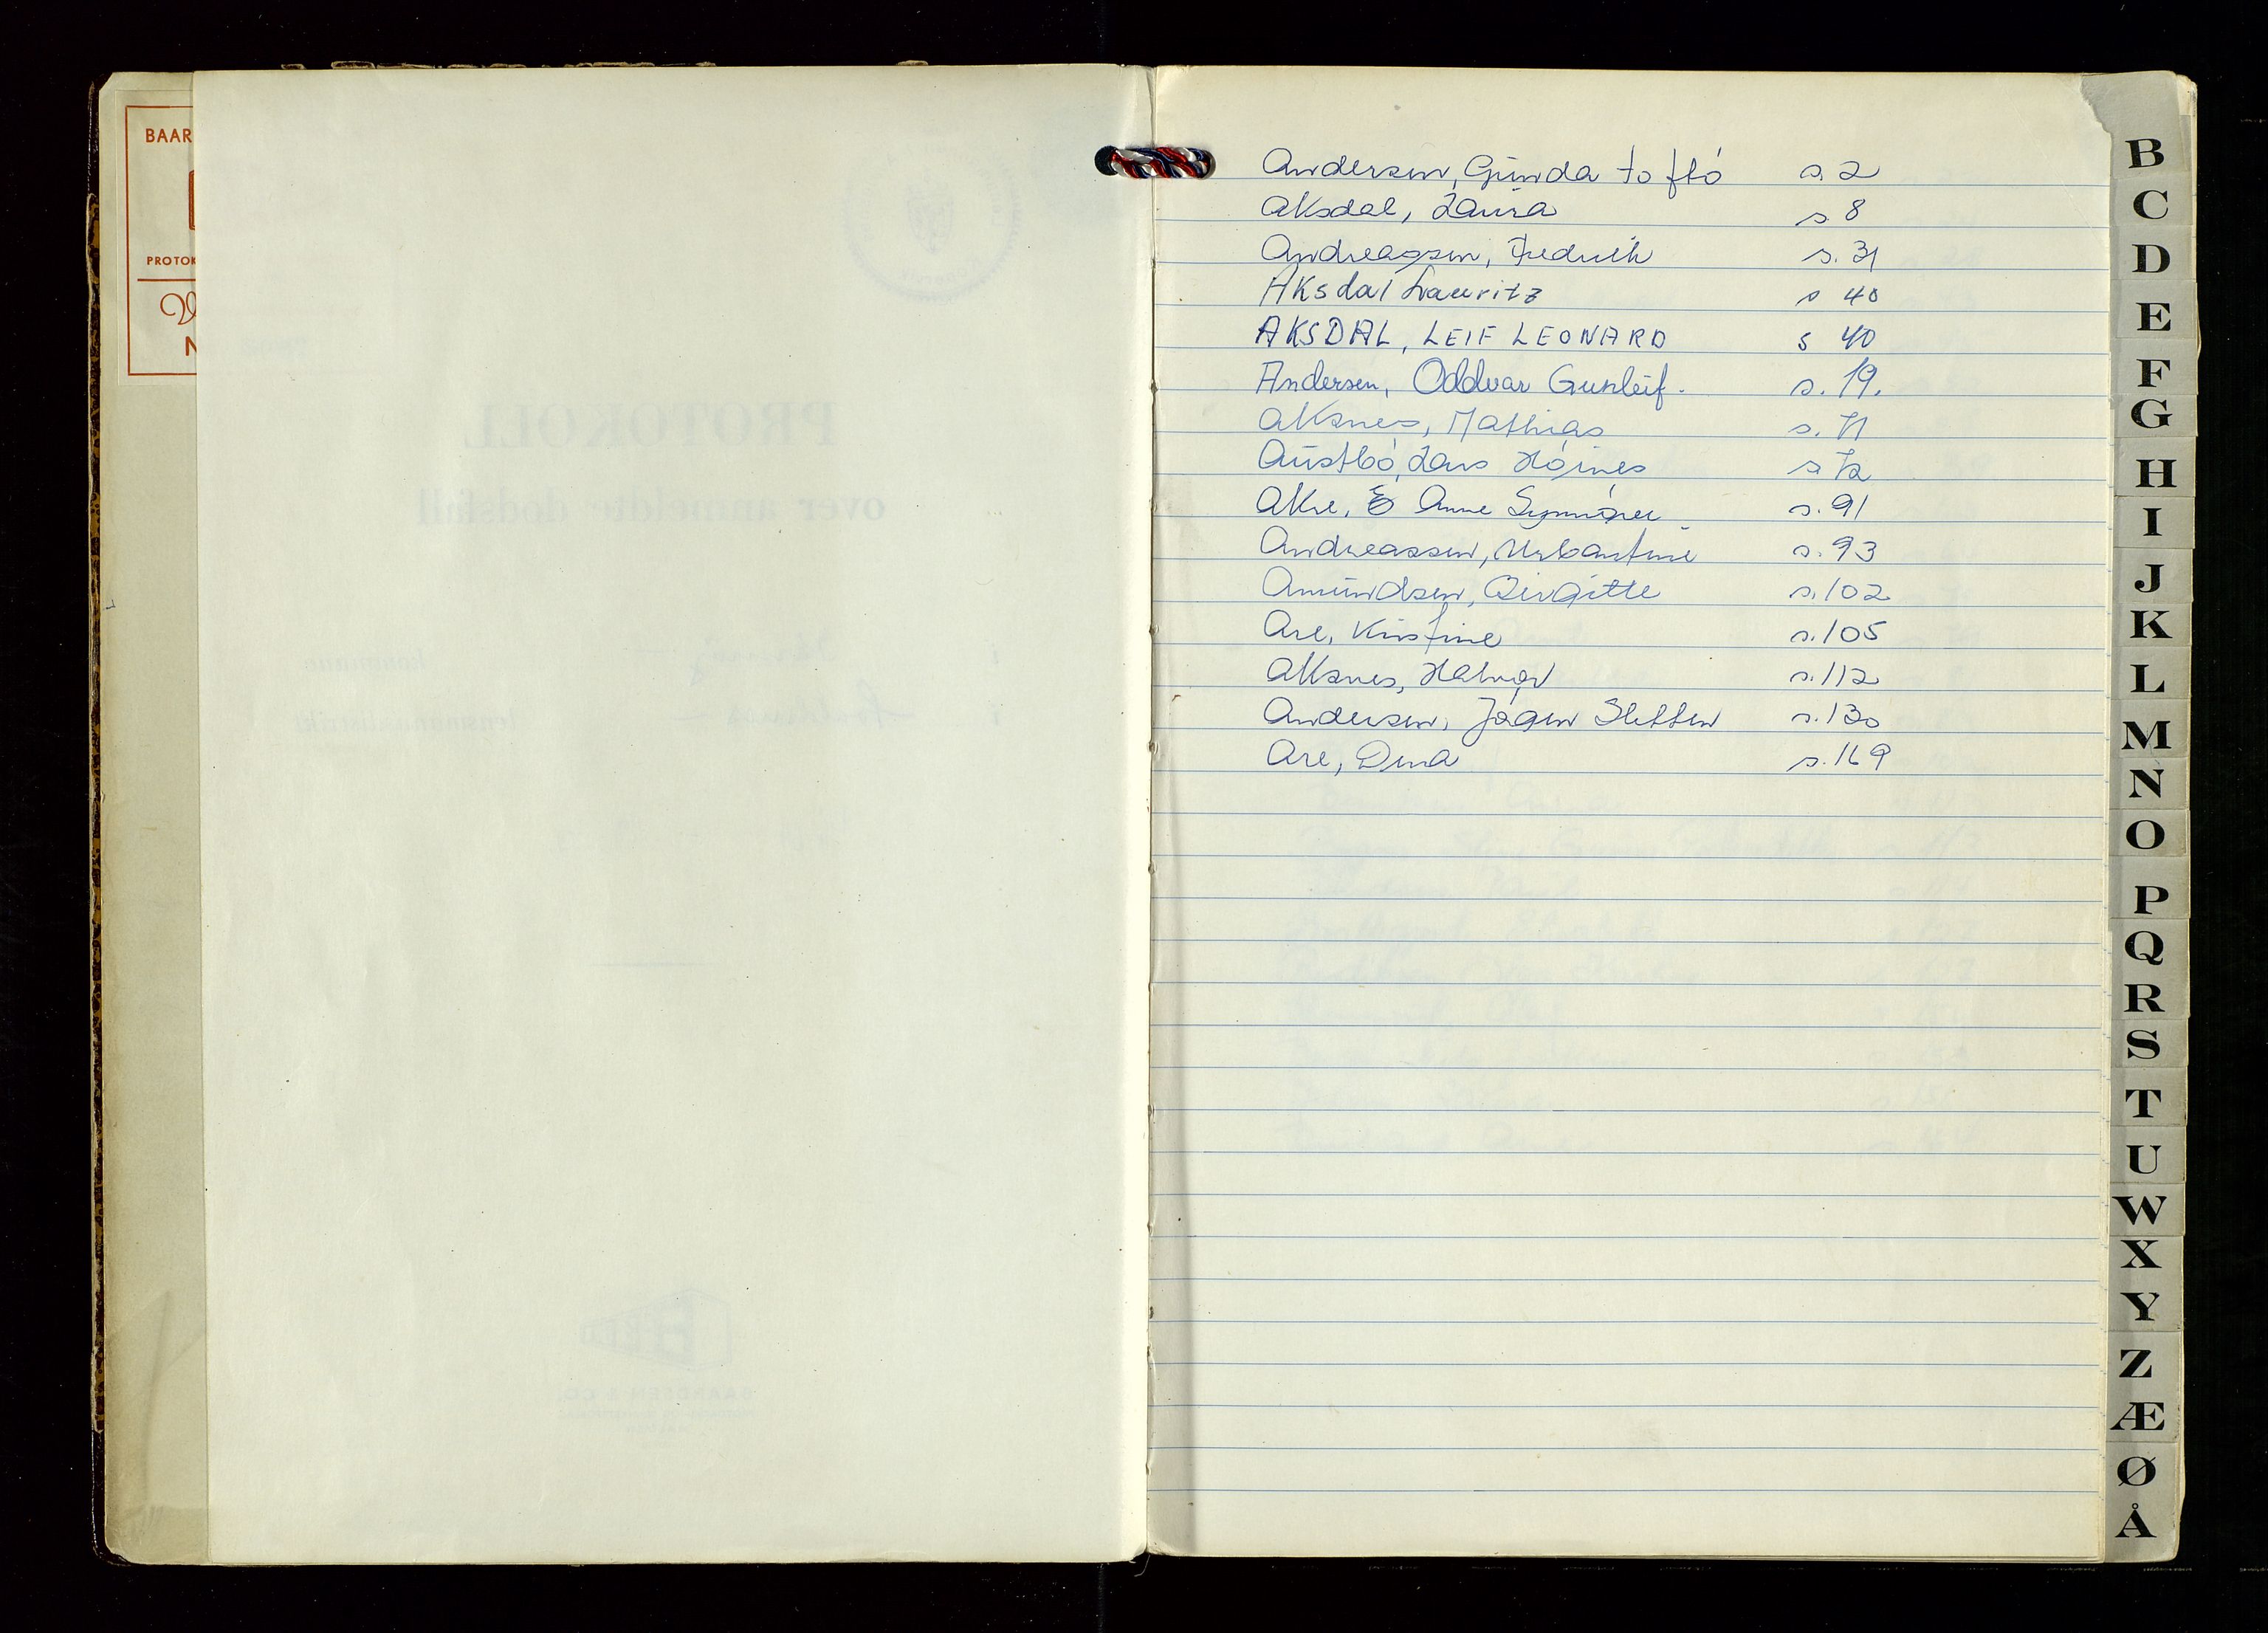 BAAR
PROTOK
N
PROTOKOLL
over anmeldte dødsfall
i
kommune
i
lensmannsdistrikt
Andersen, Gunda Toftó s. 2
Aksdal, Laura s. 8
Andreassen, Fredrik s. 31
Aksdal Lauritz s 40
AKSDAL, LEIF LEONARD s 40
Andersen, Oddvar Gunleif. s. 19.
Aksnes, Mathias s. 71
Austbó, Lars Hóines s. 72
Akre, Anne s. 91
Andreassen, Urbantine s. 93
Amundsen, Birgitte s. 102
Are, Kristine s. 105
Aksnes, Halvor s. 112
Andersen, Jógen Sletten s. 130
Are, Dina s. 169
B
C
D
E
F
G
H
I
J
K
L
M
N
O
P
Q
R
S
T
U
W
X
Y
Z
Æ
Ø
Å